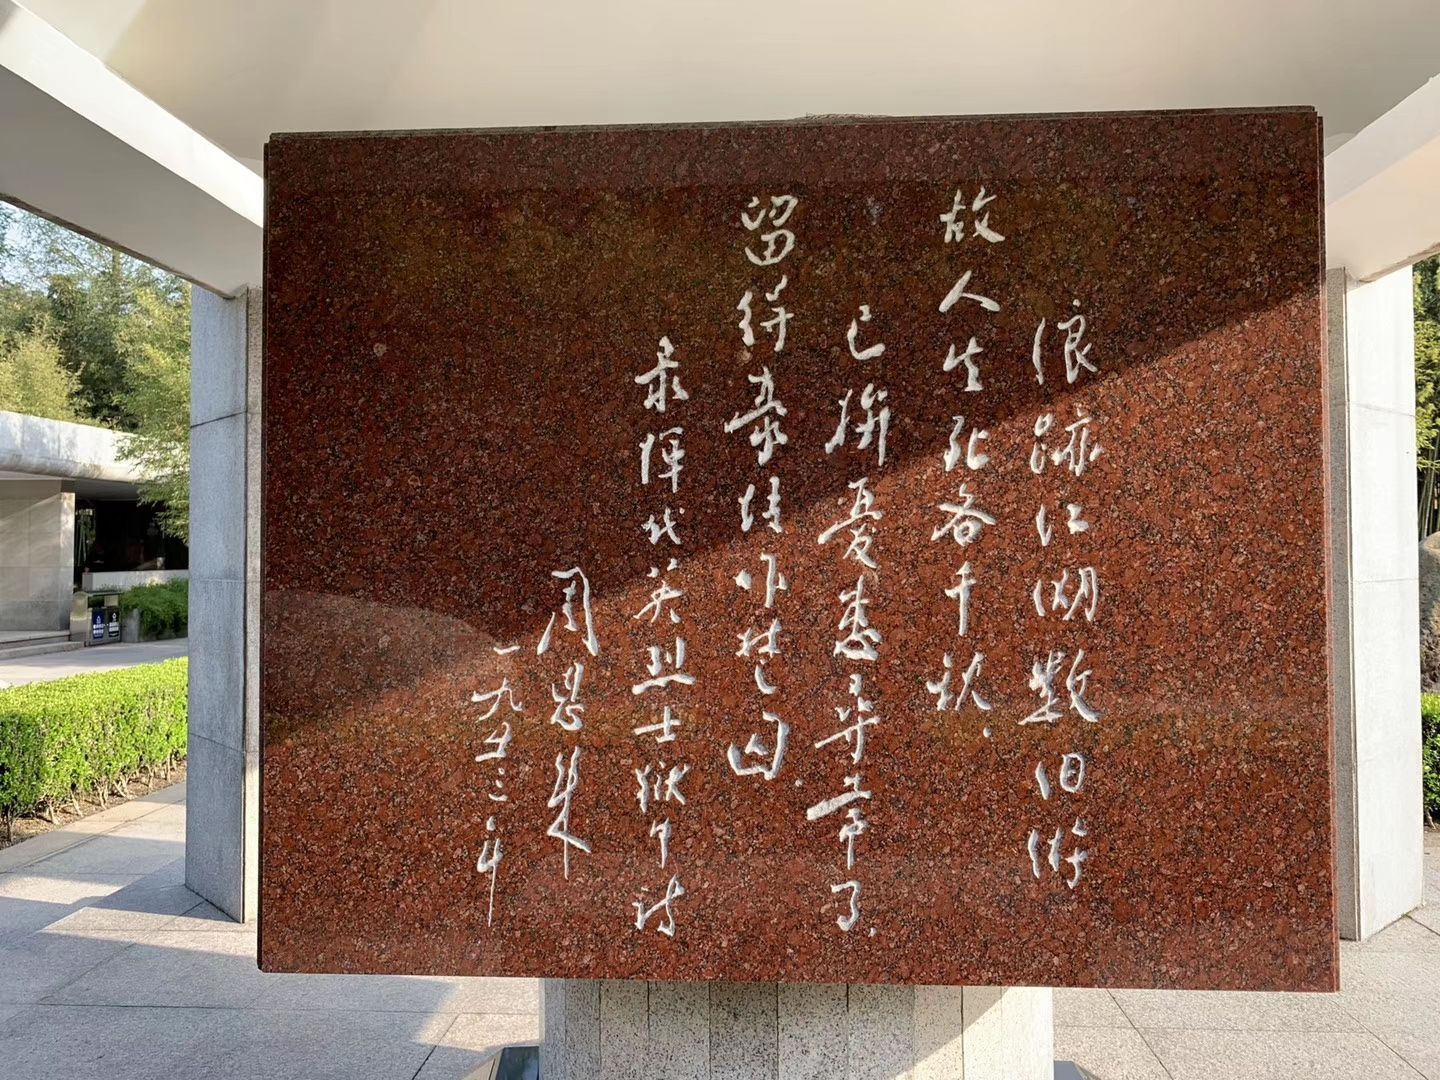 浪跡江湖數旧游
故人生死各千秋.
已拚憂患寻常事.
留得豪情作楚囚.
录恽代英烈士狱中诗
周恩来
一九五三年